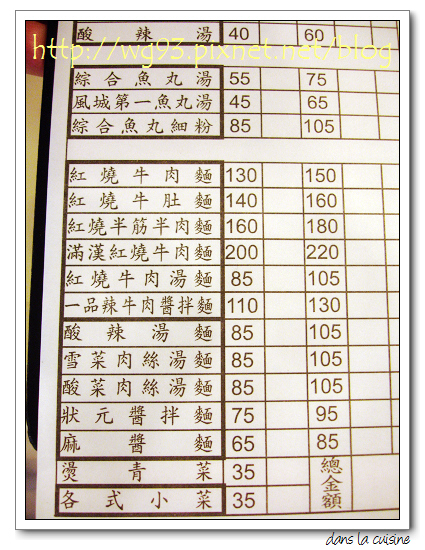 酸辣湯 40 60
http://wg93.pixnet.net/blog
綜合魚丸湯 55 75
風城第一魚丸湯 45 65
綜合魚丸細粉 85 105
紅燒牛肉麵 130 150
紅燒牛肚麵 140 160
紅燒半筋半肉麵 160 180
滿漢紅燒牛肉麵 200 220
紅燒牛肉湯麵 85 105
一品辣牛肉醬拌麵 110 130
酸辣湯麵 85 105
雪菜肉絲湯麵 85 105
酸菜肉絲湯麵 85 105
狀元醬拌麵 75 95
麻醬麵 65 85
燙青菜 35
各式小菜 35
總金額
dans la cuisine